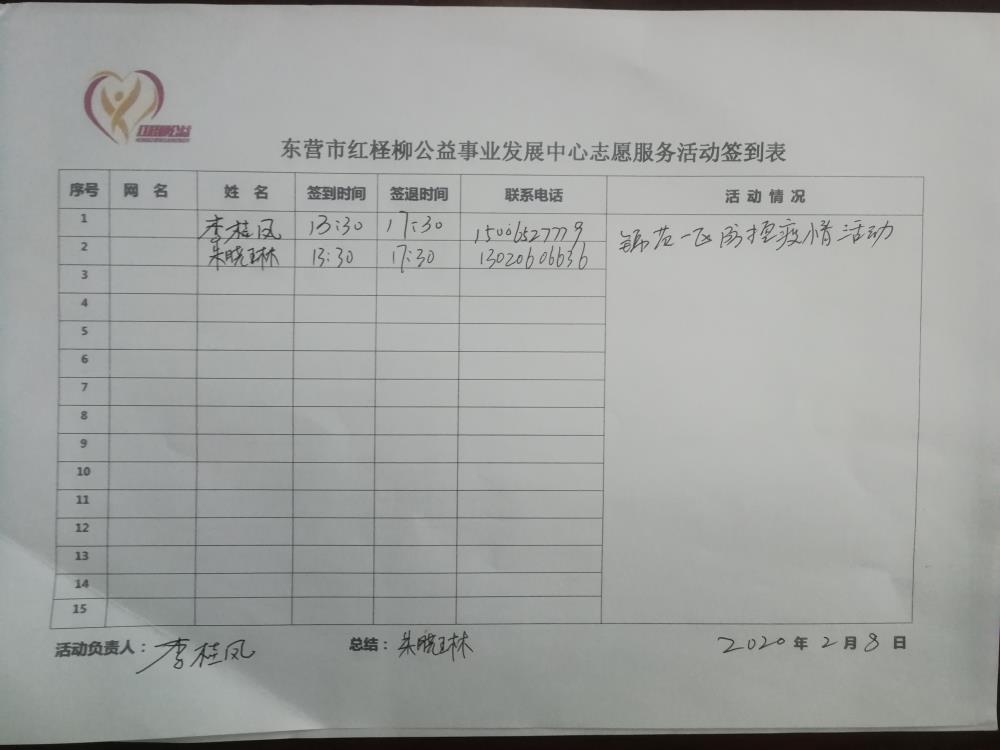 红柽柳公益
东营市红柽柳公益事业发展中心志愿服务活动签到表
序号 网 名 姓 名 签到时间 签退时间 联系电话 活 动 情 况
1 李桂凤 13:30 17:30 15006527779 锦苑一区防控疫情活动
2 朱晓琳 13:30 17:30 13020606636
3
4
5
6
7
8
9
10
11
12
13
14
15
活动负责人：李桂凤 总结：朱晓琳 2020年2月8日